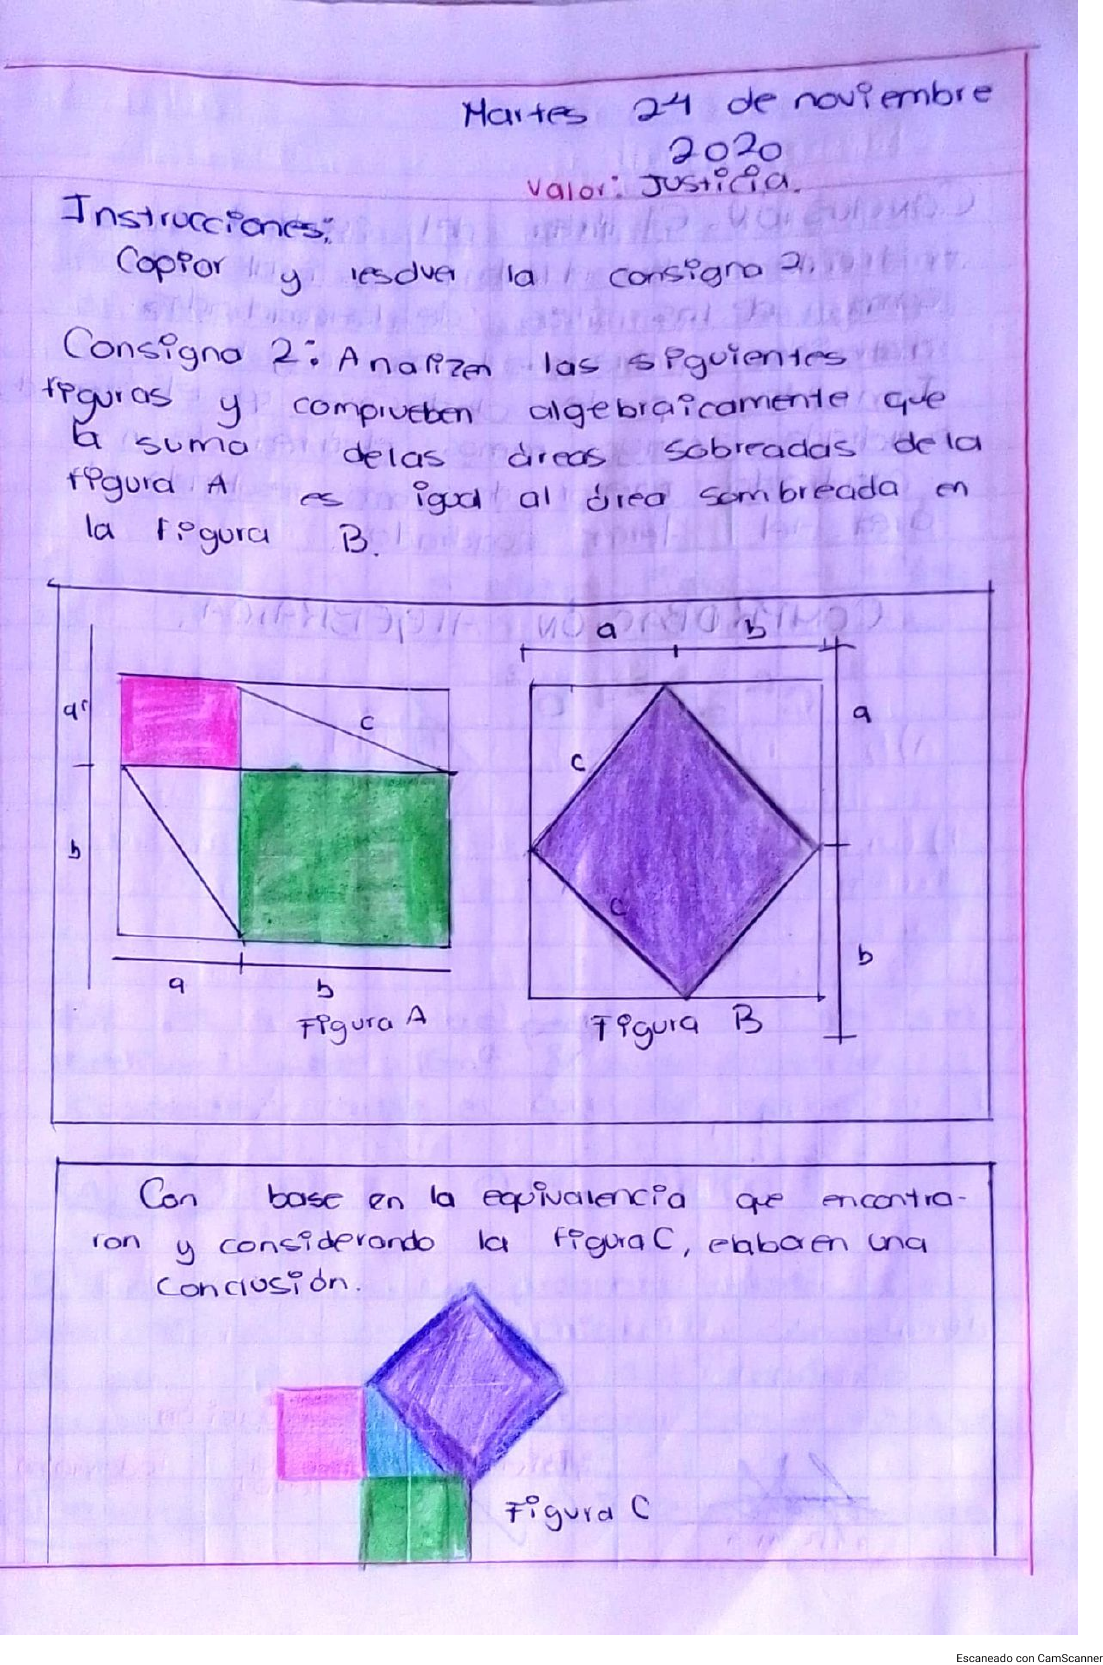 Martes 24 de noviembre
2020
Valor: Justicia.
Instrucciones:
Copiar y resolver la consigna 2.
Consigna 2: Analizen las siguientes
figuras y comprueben algebraicamente que
la suma delas áreas sobreadas de la
figura A es igual al área sombreada en
la figura B.
a b
a c
c a
b
c
b
a b
Figura A Figura B
Con base en la equivalencia que encontra-
ron y considerando la figura C, elaboren una
Conclusión.
Figura C
Escaneado con CamScanner